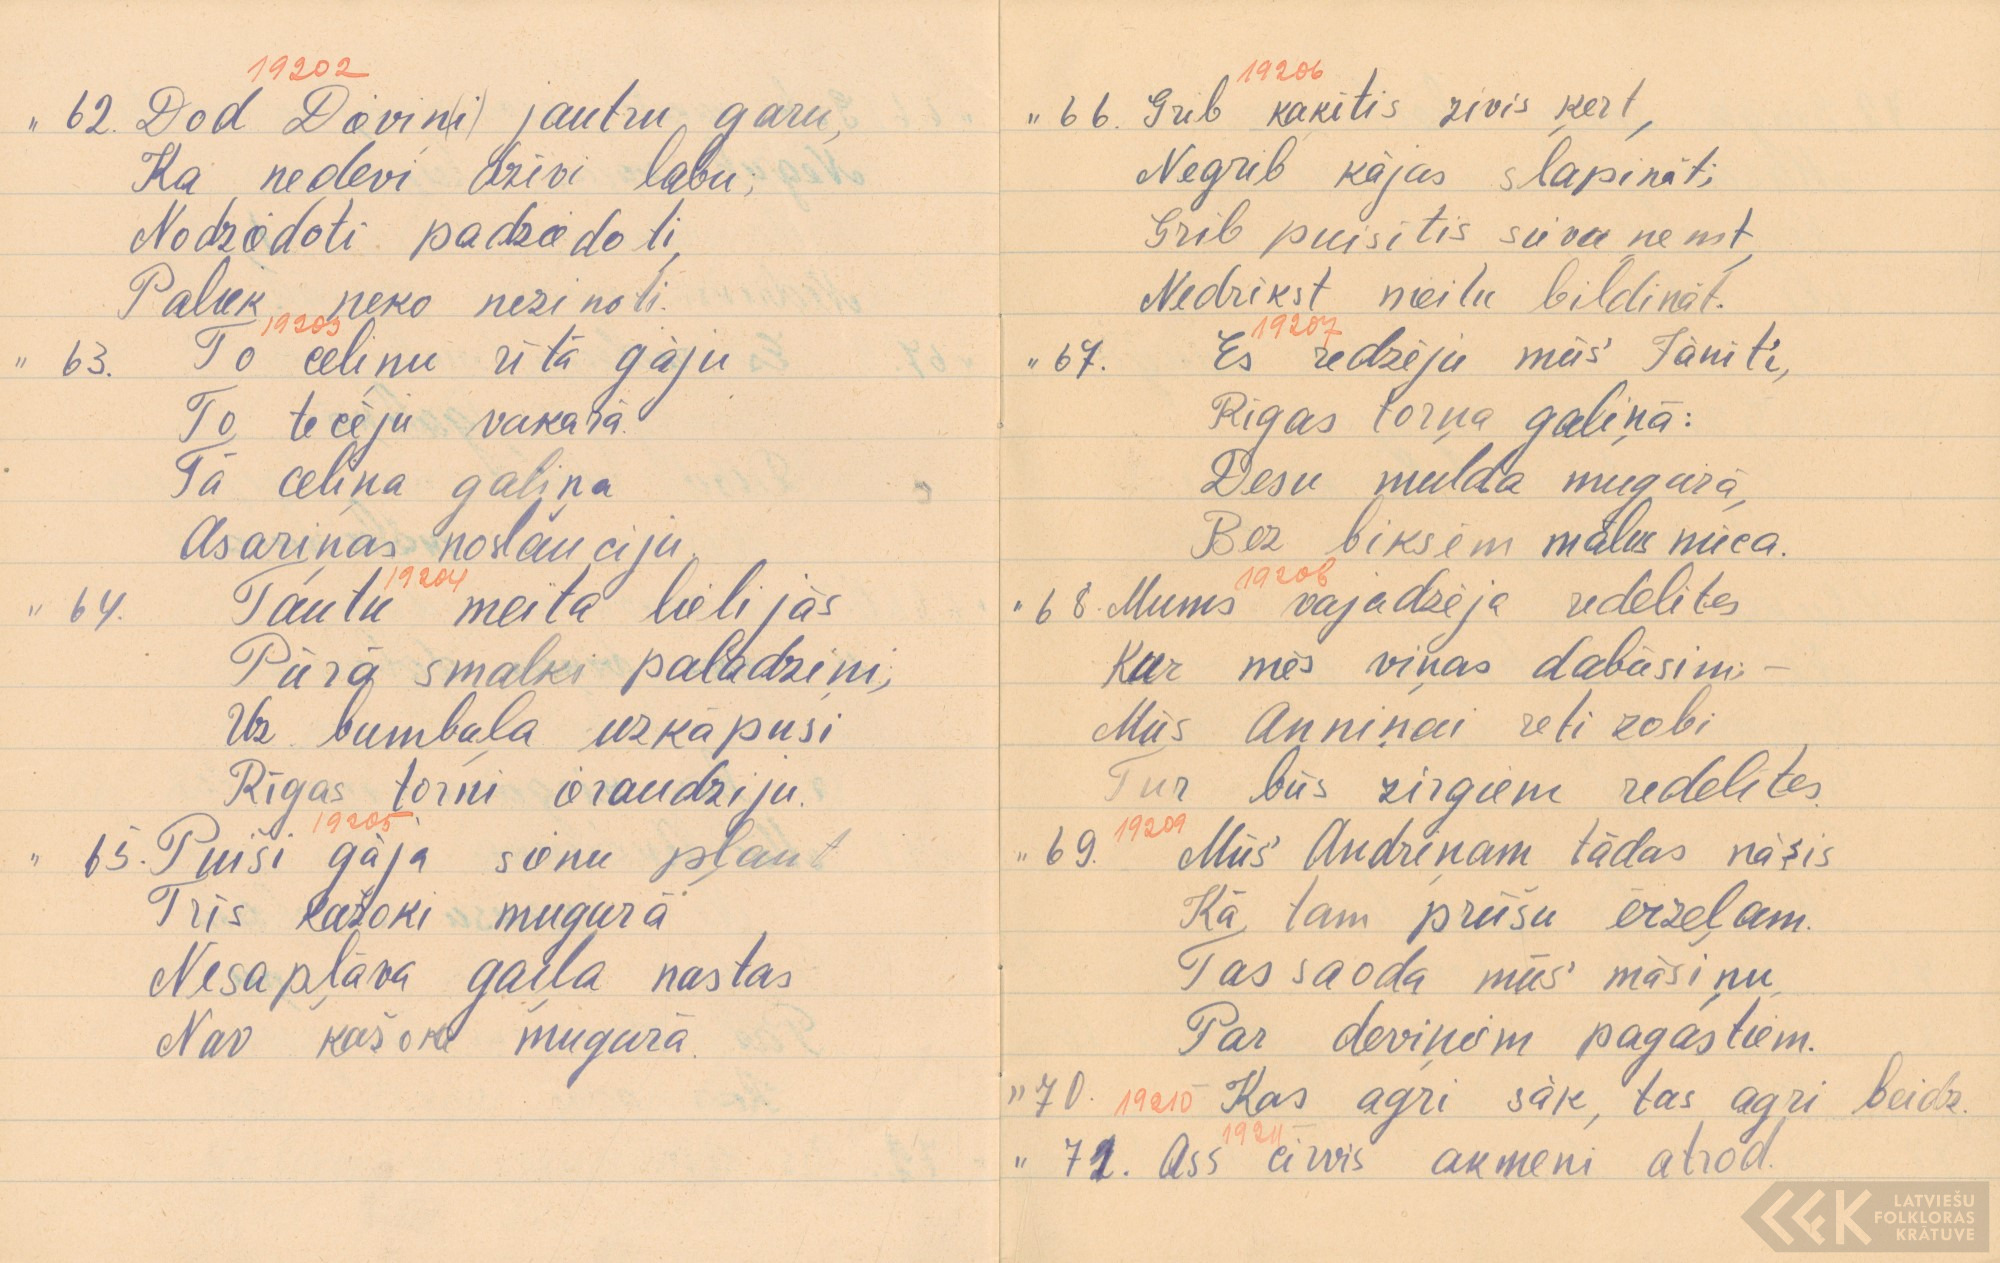 19202
" 62. Dod Dieviņ(i) jautru garu,
Ka nedevi dzīvi labu;
Nodziedoti padziedoti,
Paliek neko nezinoti.
19203
" 63. To celiņu rītā gāju
To tecēju vakarā.
Tā celiņa galiņa
Asariņas noslauciju.
19204
" 64. Tautu meita lielijās
Pūrā smalki paladziņi;
Uz bumbaļa uzkāpusi
Rīgas torni ieraudziju.
19205
" 65. Puiši gāja sienu pļaut
Trīs kažoki mugurā
Nesapļāva gaiļa nastas
Nav kažoka mugurā.
19206
" 66. Grib kaķītis zivis ķert,
Negrib kājas slapināti;
Grib puisītis sievu ņemt,
Nedrīkst meitu bildināt.
19207
" 67. Es redzēju mūs' Jānīti,
Rīgas torņa galiņā:
Desu mulda mugurā,
Bez biksēm mālus mīca.
19208
" 68. Mums vajadzēja redelītes
Kur mēs viņas dabūsim; –
Mūs Anniņai reti zobi
Tur būs zirgiem redelītes.
" 69. 19209 Mūs' Andriņam tādas nāšis
Kā tam prūšu ērzeļam.
Tas saoda mūs' māsiņu
Par deviņiem pagastiem.
" 70. 19210 Kas agri sāk, tas agri beidz.
19211
" 71. Ass cirvis akmeni atrod.
LATVIEŠU
FOLKLORAS
KRĀTUVE